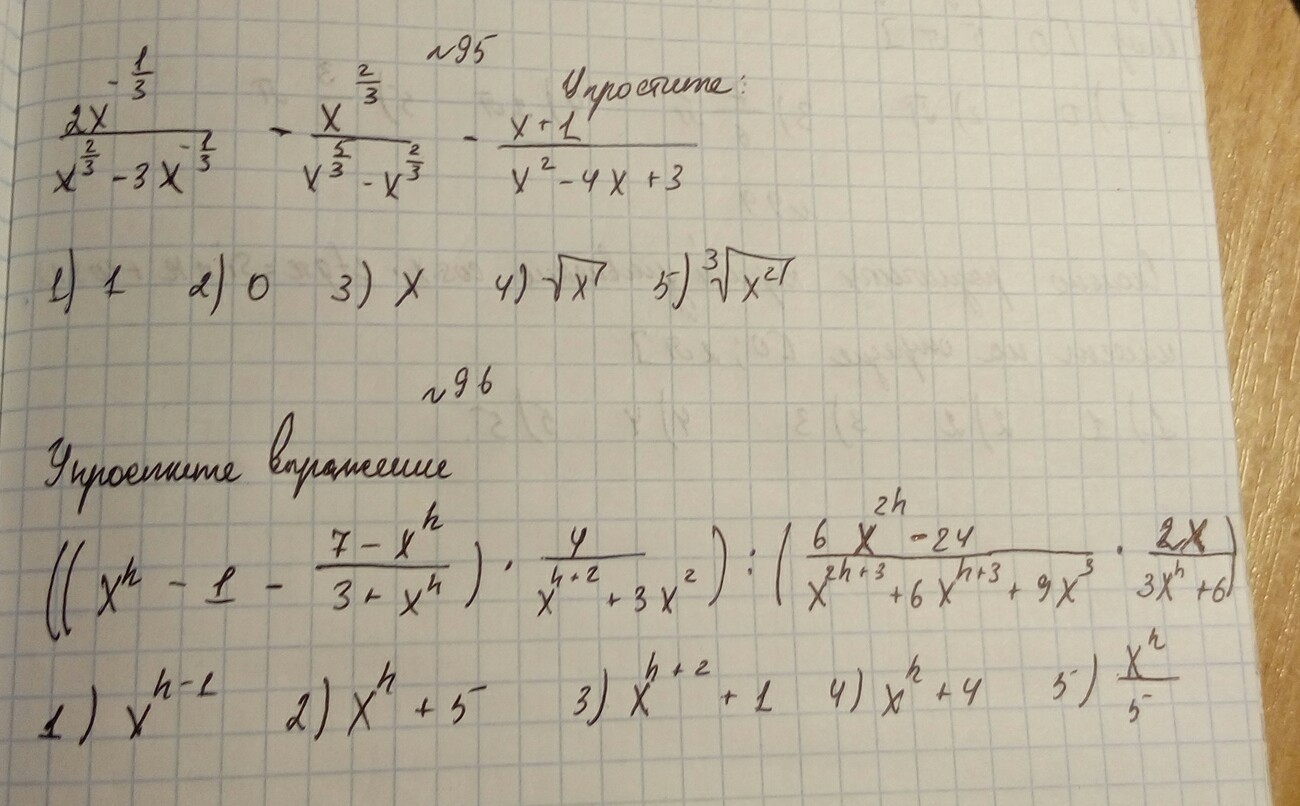 №95
Упростите:
2x^{-1/3} / (x^{2/3} - 3x^{-1/3}) - x^{2/3} / (x^{5/3} - x^{2/3}) - (x+1) / (x^2 - 4x + 3)
1) 1 2) 0 3) x 4) √x 5) ∛x^2
№96
Упростите выражение
((x^n - 1 - (7 - x^n) / (3 + x^n)) · 4 / (x^{n+2} + 3x^2)) : ((6x^{2n} - 24) / (x^{2n+3} + 6x^{n+3} + 9x^3) · 2x / (3x^n + 6))
1) x^{n-1} 2) x^n + 5 3) x^{n+2} + 1 4) x^n + 4 5) x^n / 5